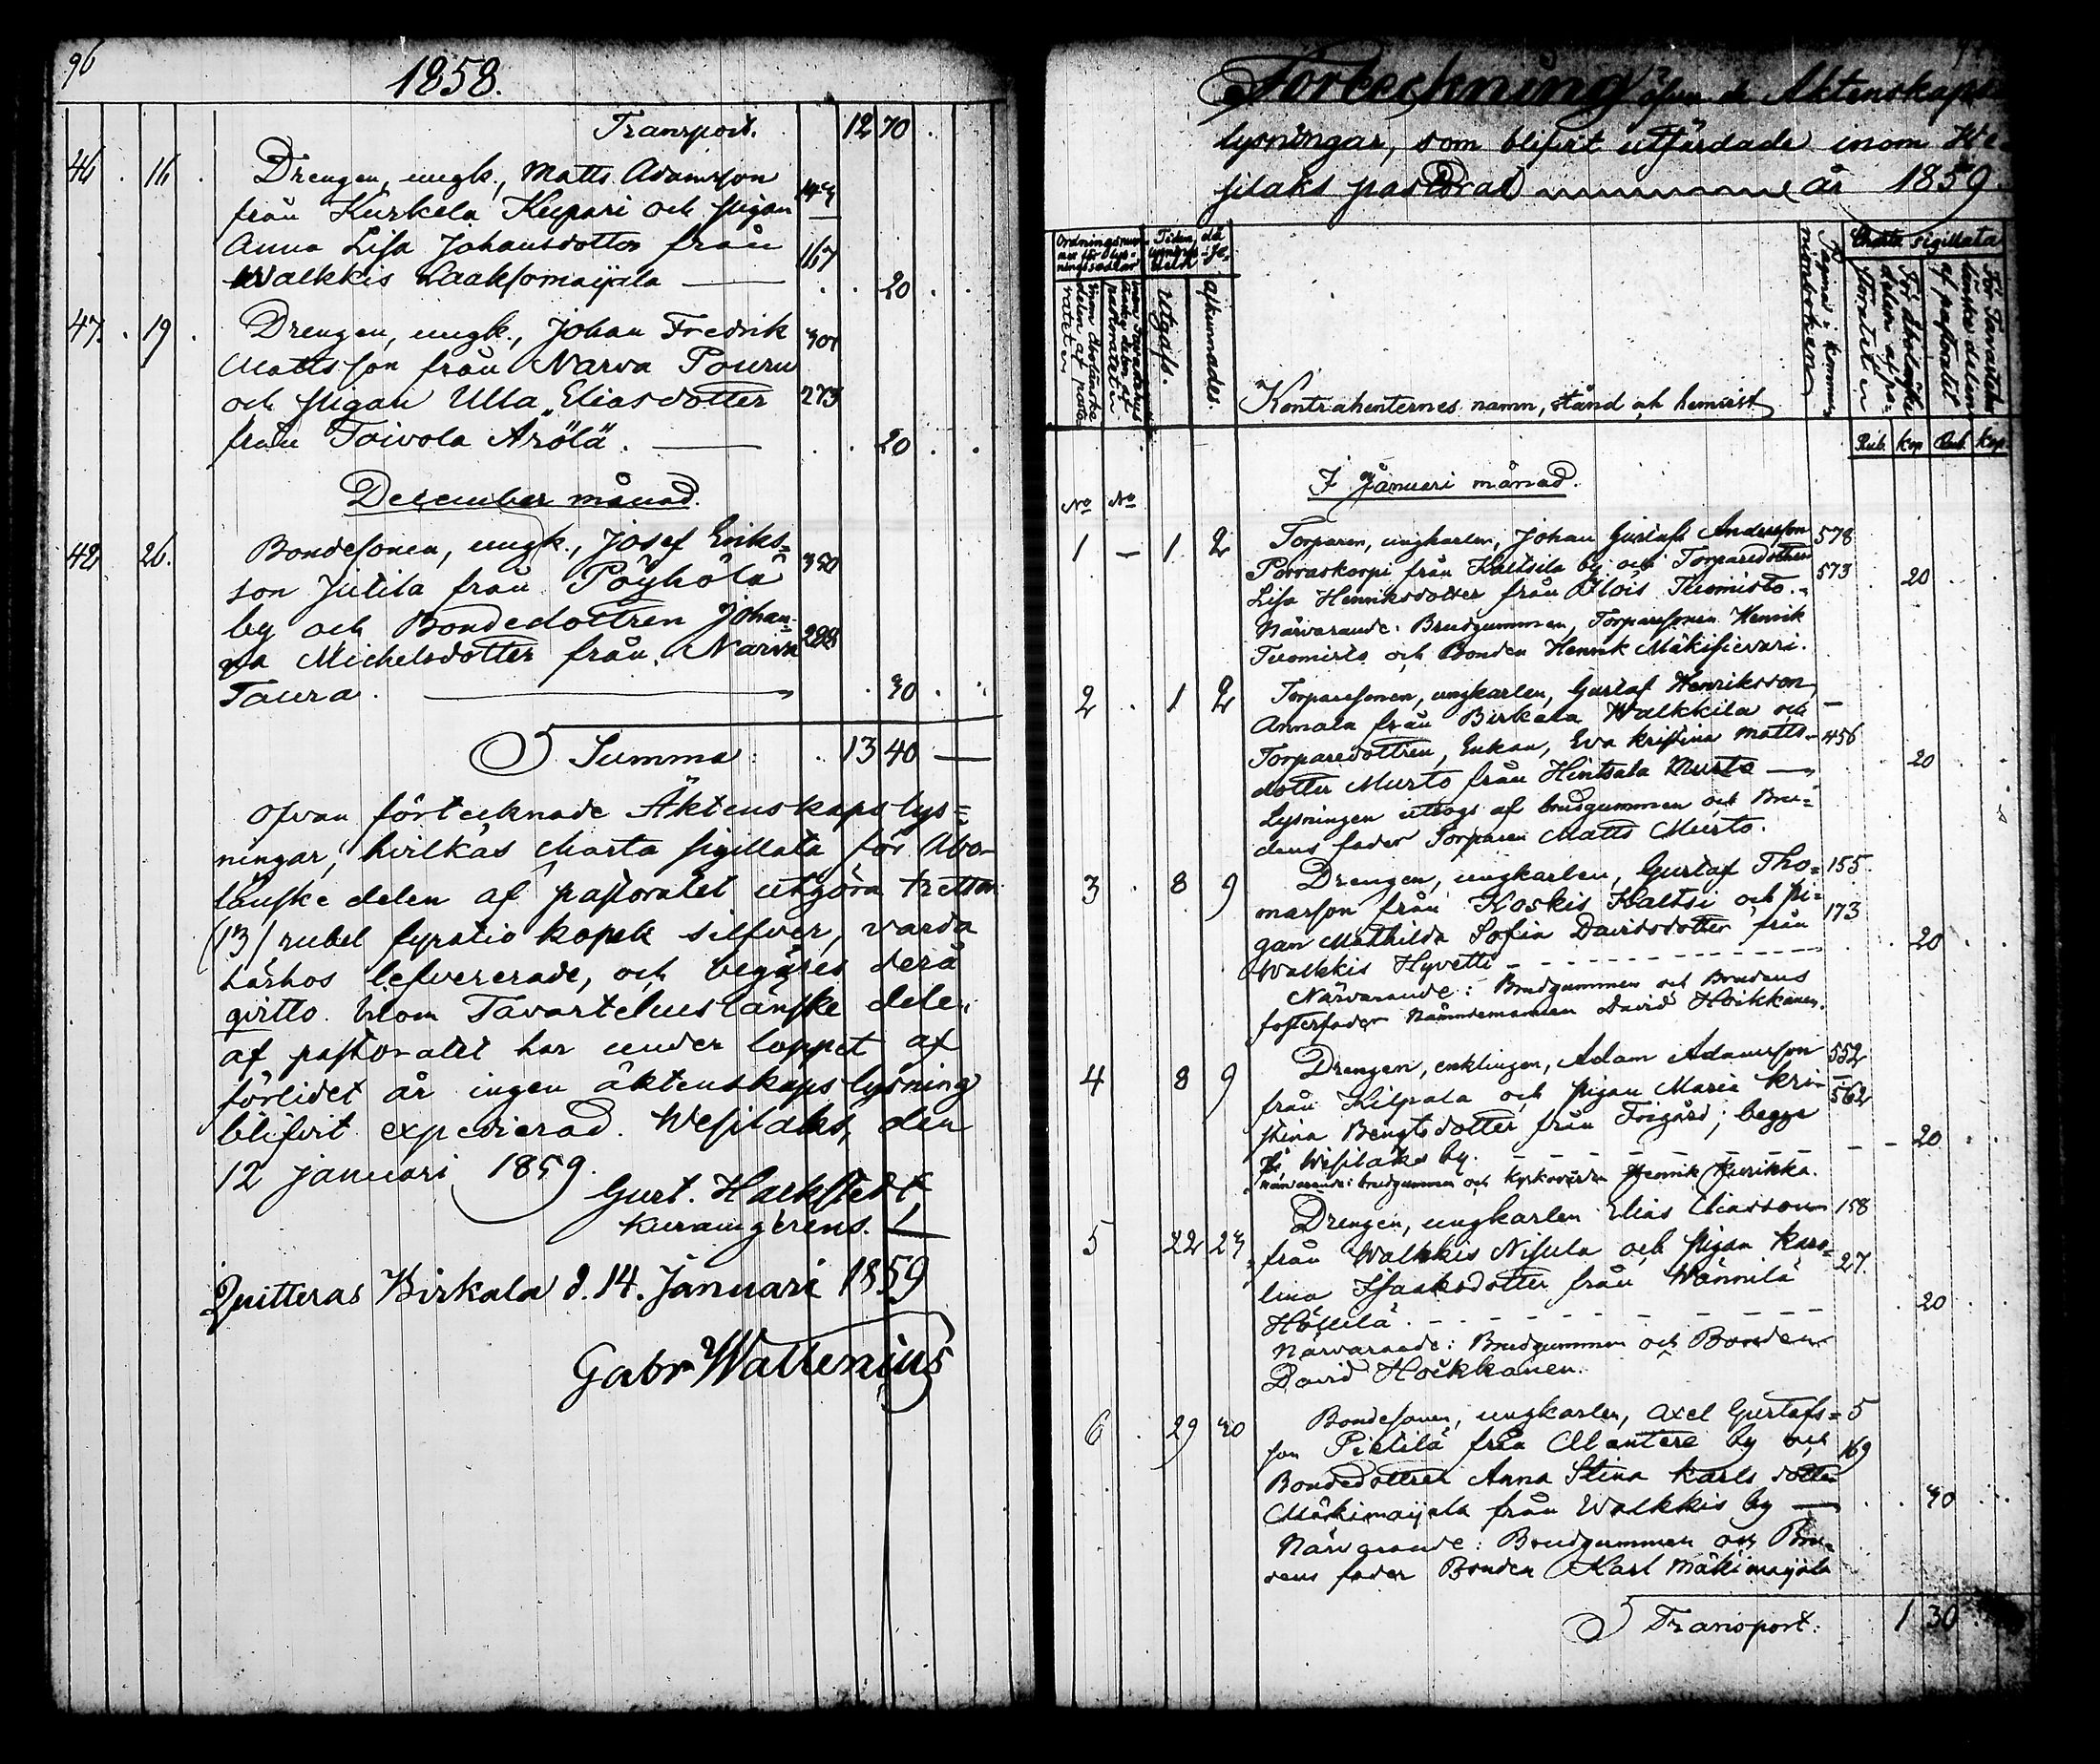 96
1858.
Transport. 12 70
46 . 16 . Drengen, ungk., Matts Adamsson
från Kurkela Kupari och pigan
Anna Lisa Johansdotter från 167
Walkkis Laaksomaijala — . . 20 . .
47. . 19 . Drengen, ungk., Johan Fredrik
Mattsson från Narva Pouru
och pigan Ulla Eliasdotter 273
från Toivola Arölä. — . . 20 . .
December månad.
48 26. Bondesonen, ungk., Josef Eriks=
son Jutila från Pöyhölä 350
by och Bondedottren Johan-
na Michelsdotter från Narva 288
Taura. — . 30 .
Summa: . 13 40 —
Ofvan förtecknade Äktenskapslys=
ningar, hvilkas Charta sigillata för Åbo-
länske delen af pastoratet utgöra tretton
(13) rubel fyratio kopek silfver, varda
härhos lefvererade, och begäres derå
qvitto. Inom Tavastehuslänske delen
af pastoratet har under loppet af
förlidet år ingen äktenskapslysning
blifvit expedierad. Wesilaks, den
12 januari 1859.
Gust. Hackstedt
kuramgerens.
Quitteras Birkala d. 14. Januari 1859
Gabr Wallenius
Förteckning öfver de Äktenskaps
lysningar, som blifvit utfärdade inom We-
silaks pastorat år 1859.
Ordningsnum-
mer för lys-
ningssedlar
Tiden, då
lysningse-
deln
inom Åbolänska
delen af pasto-
ratet
inom Tavastehus
länska delen af
pastoratet
Utgafs.
afkunnades.
Kontrahenternes namn, stånd och hemvist
Pagina i kommu-
nionboken
Charta sigillata
För Åbolänske
delen af pa-
storatet
För Tavastehus
länske delen
af pastoratet
Rub. kop Rub. kop.
No No I Januari månad.
1 — 1 2 Torparen, ungkarlen, Johan Gustaf Andersson 578
Porraskorpi från Kaltsila by och Torparedottren 573 . 20 . .
Lisa Henriksdotter från Tuomisto.
Närvarande: Brudgummen, Torparesonen Henrik
Tuomisto och Bonden Henrik
2 . 1 2 Torparesonen, ungkarlen, Gustaf Henriksson, —
Annala från Birkala Walkkila och
Torparedottren, Enkan, Eva Kristina Matts- 456
dotter Murto från Hintsala Murto — . 20 .
Lysningen uttogs af brudgummen och Bru=
dens fader Torparen Matts Murto.
3 . 8 9 Drengen, ungkarlen, Gustaf Tho= 155
masson från Koskis Kaltsi och pi= 173
gan Mathilda Sofia Davidsdotter från . 20 .
Walkkis Hyvetti
Närvarande: Brudgummen och Brudens
fosterfader Nämndemannen David Hoikkanen.
4 8 9 Drengen, enklingen, Adam Adamsson 552
från Kilpala och pigan Maria Kri- 562
stina Bengtsdotter från Forgård; begge
på Wesilaks by. 20 .
Närvarande: brudgummen och Kyrkovärden Henrik Kurikka.
5 22 23 Drengen, ungkarlen Elias Eliasson 158
från Walkkis Nisula och pigan Karo= 27.
lina Isaaksdotter från Wännilä
Höllilä . 20 .
Närvarande: Brudgummen och Bonden
David Hoikkanen.
6 . 29 30 Bondesonen, ungkarlen, Axel Gustafs= 5
son Pietilä från Mantere by och 169
Bondedottren Anna Stina Karlsdotter
Mäkimaijala från Walkkis by — . . 30 . .
Närvarande: Brudgummen och Bru=
dens fader Bonden Karl Mäkimaijala
Transport: 1 30